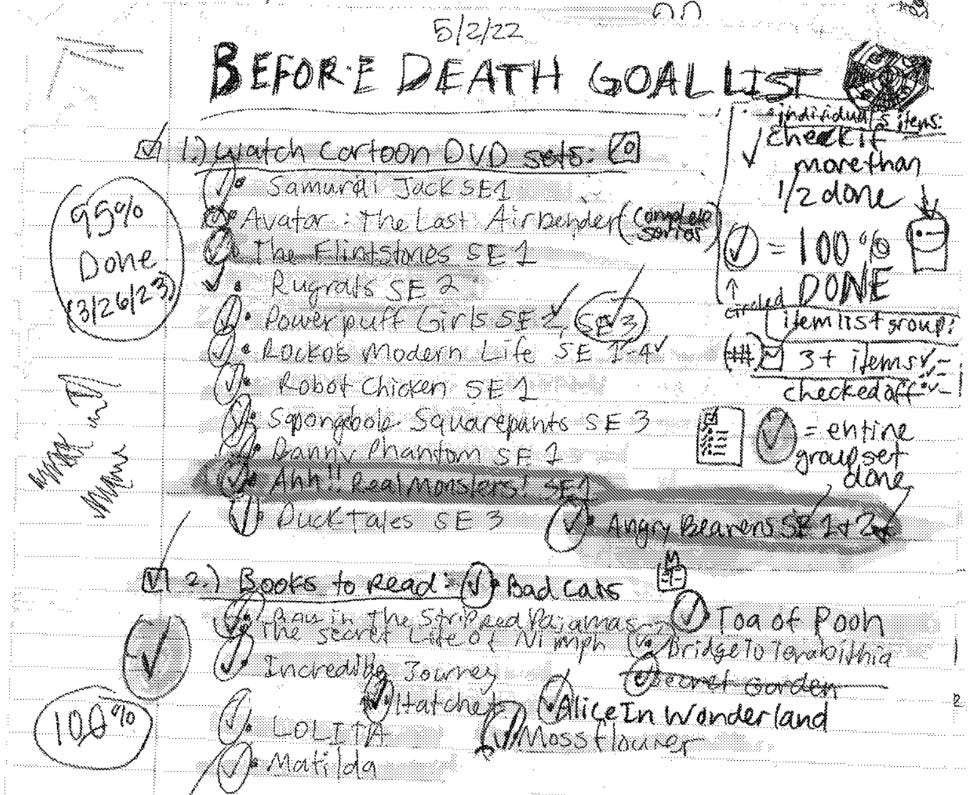 5/2/22
BEFORE DEATH GOAL LIST
individual's items:
check if
more than
1/2 done
= 100%
DONE
circled
item list group:
(##) 3+ items
checked off
= entire
group set
done
1.) Watch Cartoon DVD sets:
95%
Done
(3/26/23)
Samurai Jack SE1
Avatar: The Last Airbender (Complete series)
The Flintstones SE 1
Rugrats SE 2
Powerpuff Girls SE 2, SE 3
Rockos Modern Life SE 1-4
Robot Chicken SE 1
Spongbob Squarepants SE 3
Danny Phantom SE 1
Ahh!! Real Monsters! SE1
DuckTales SE 3
Angry Beavens SE 1+2
2.) Books to Read:
Bad Cats
in The Stripped Pajamas
Toa of Pooh
The Secret Life of Nimph
Bridge To Terabithia
Incredible Journey
Secret Garden
Hatchet
Alice In Wonderland
100%
LOLITA
Mossflower
Matilda